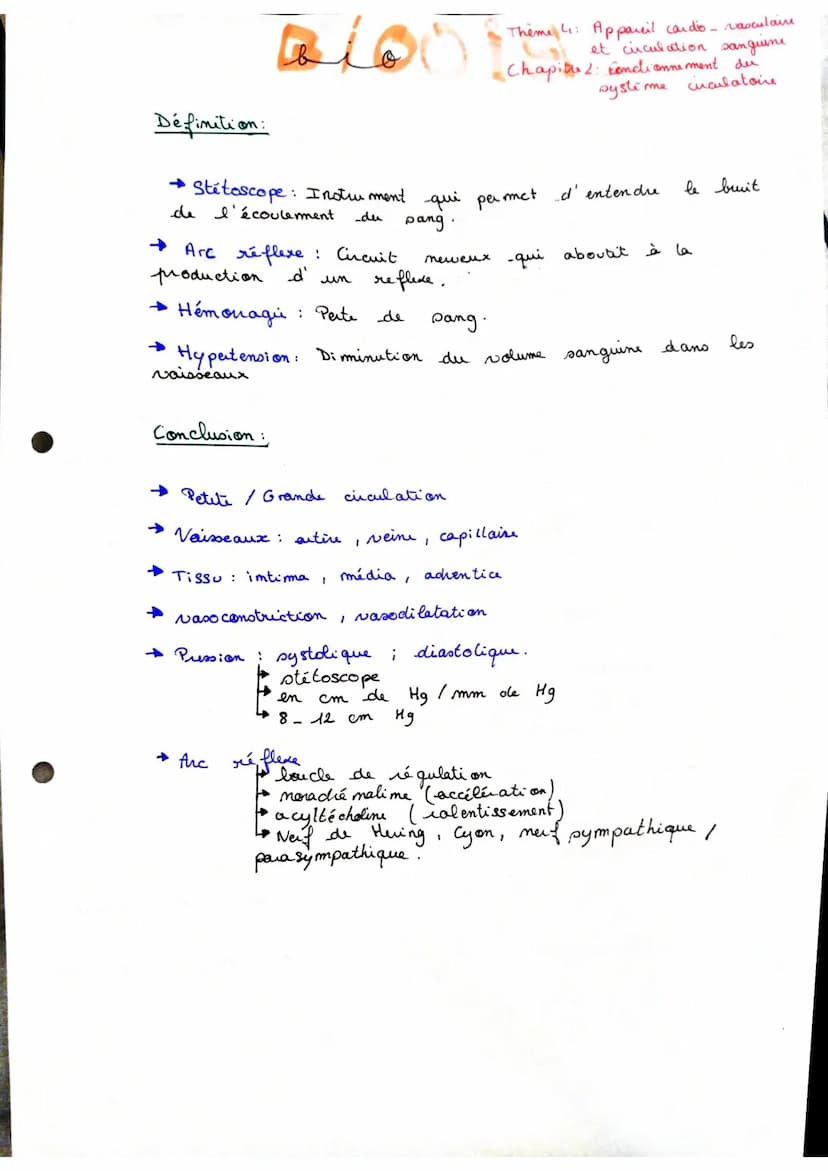 BIO
bio
Thème 4: Appareil cardio-vasculaire
et circulation sanguine
Chapitre 2: Fonctionnement du
système circulatoire
Définition:
→ Stétoscope: Instrument qui permet d'entendre le bruit
de l'écoulement du sang.
→ Arc réflexe: Circuit nerveux qui aboutit à la
production d'un reflexe.
→ Hémorragie: Perte de sang.
→ Hypertension: Diminution du volume sanguine dans les
vaisseaux
Conclusion:
→ Petite / Grande circulation
→ Vaisseaux: artère, veine, capillaire
→ Tissu: intima, média, adventice
→ vasoconstriction, vasodilatation
→ Pression: systolique; diastolique.
→ stétoscope
→ en cm de Hg / mm de Hg
→ 8-12 cm Hg
→ Arc réflexe
→ boucle de régulation
→ noradrénaline (accélération)
→ acyltécholine (ralentissement)
→ Nerf de Hering, Cyon, nerf sympathique /
parasympathique.